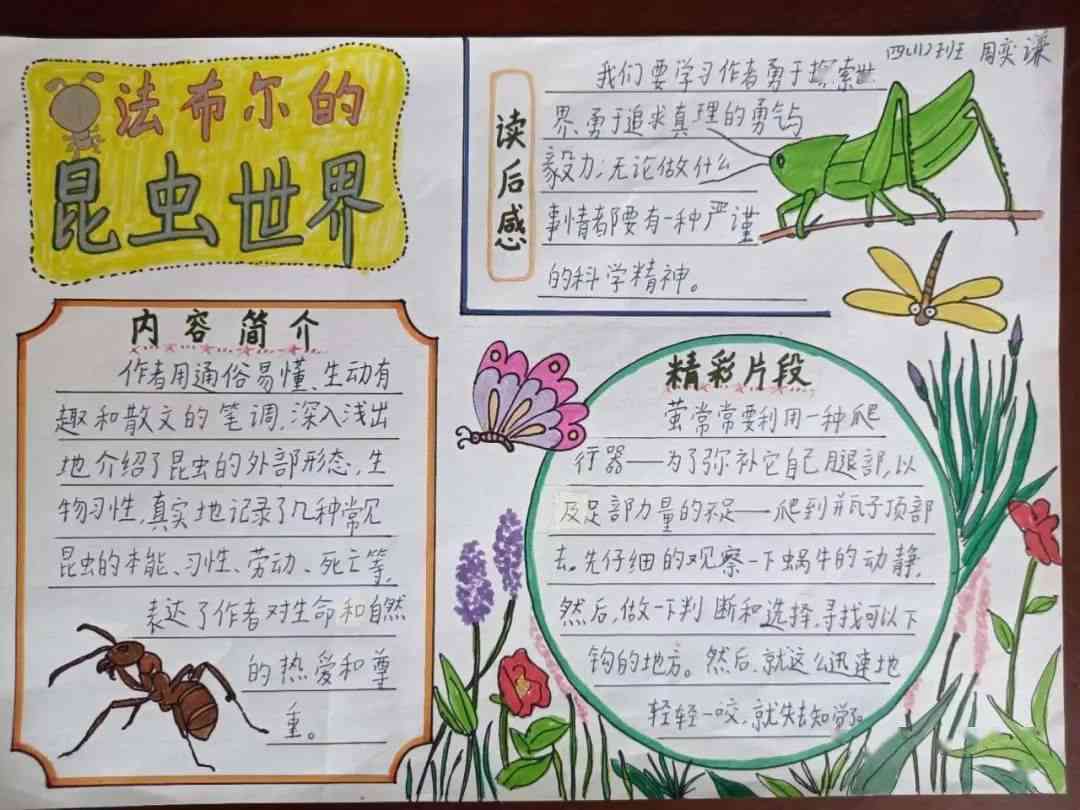 法布尔的
昆虫世界
四(1)班 周奕谦
读后感
我们要学习作者勇于探索世
界、勇于追求真理的勇气与
毅力;无论做什么
事情都要有一种严谨
的科学精神。
内容简介
作者用通俗易懂、生动有
趣和散文的笔调,深入浅出
地介绍了昆虫的外部形态,生
物习性,真实地记录了几种常见
昆虫的本能、习性、劳动、死亡等,
表达了作者对生命和自然
的热爱和尊
重。
精彩片段
萤常常要利用一种爬
行器——为了弥补它自己腿部,以
及足部力量的不足——爬到瓶子顶部
去。先仔细的观察一下蜗牛的动静,
然后,做一下判断和选择,寻找可以下
钩的地方。然后,就这么迅速地
轻轻一咬,就失去知觉了。